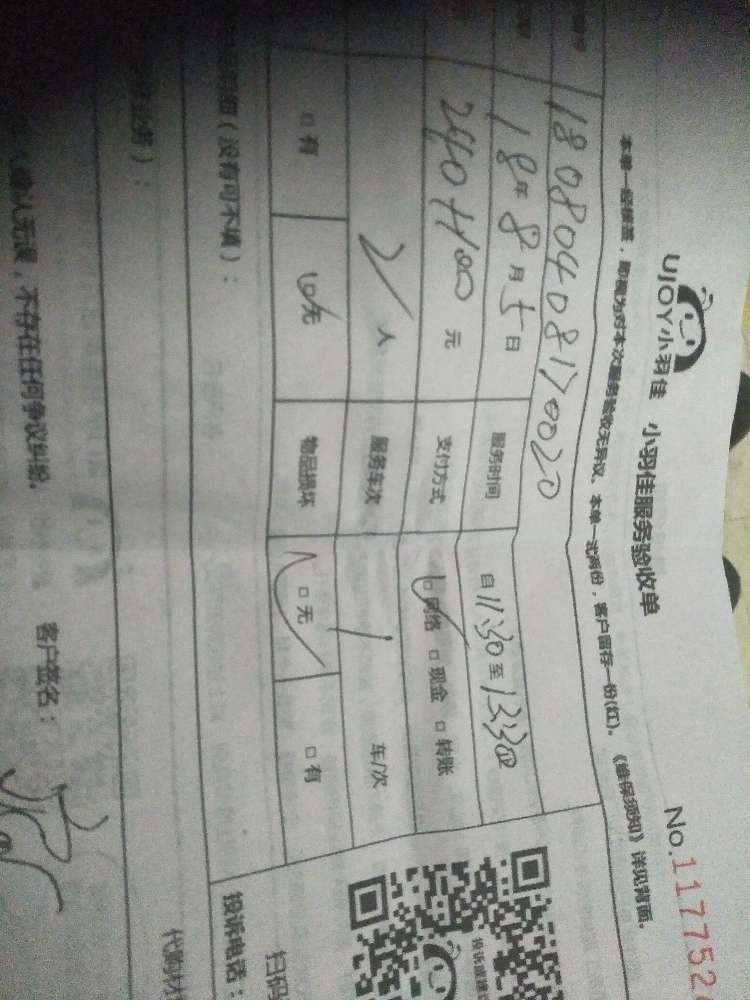 UJOY小羽佳 小羽佳服务验收单
No.117752
本单一经签署，即视为对本次服务验收无异议。本单一式两份，客户留存一份(红)。《维保须知》详见背面。
18080408170020
18年8月5日 服务时间 自11:30至13:30
240+100元 支付方式 □网络 □现金 □转账
2人 服务车次 1 车/次
□有 □无 物品损坏 □无 □有
(没有可不填)：
投诉电话：
扫码
代购材
认无误，不存在任何争议纠纷。
客户签名：